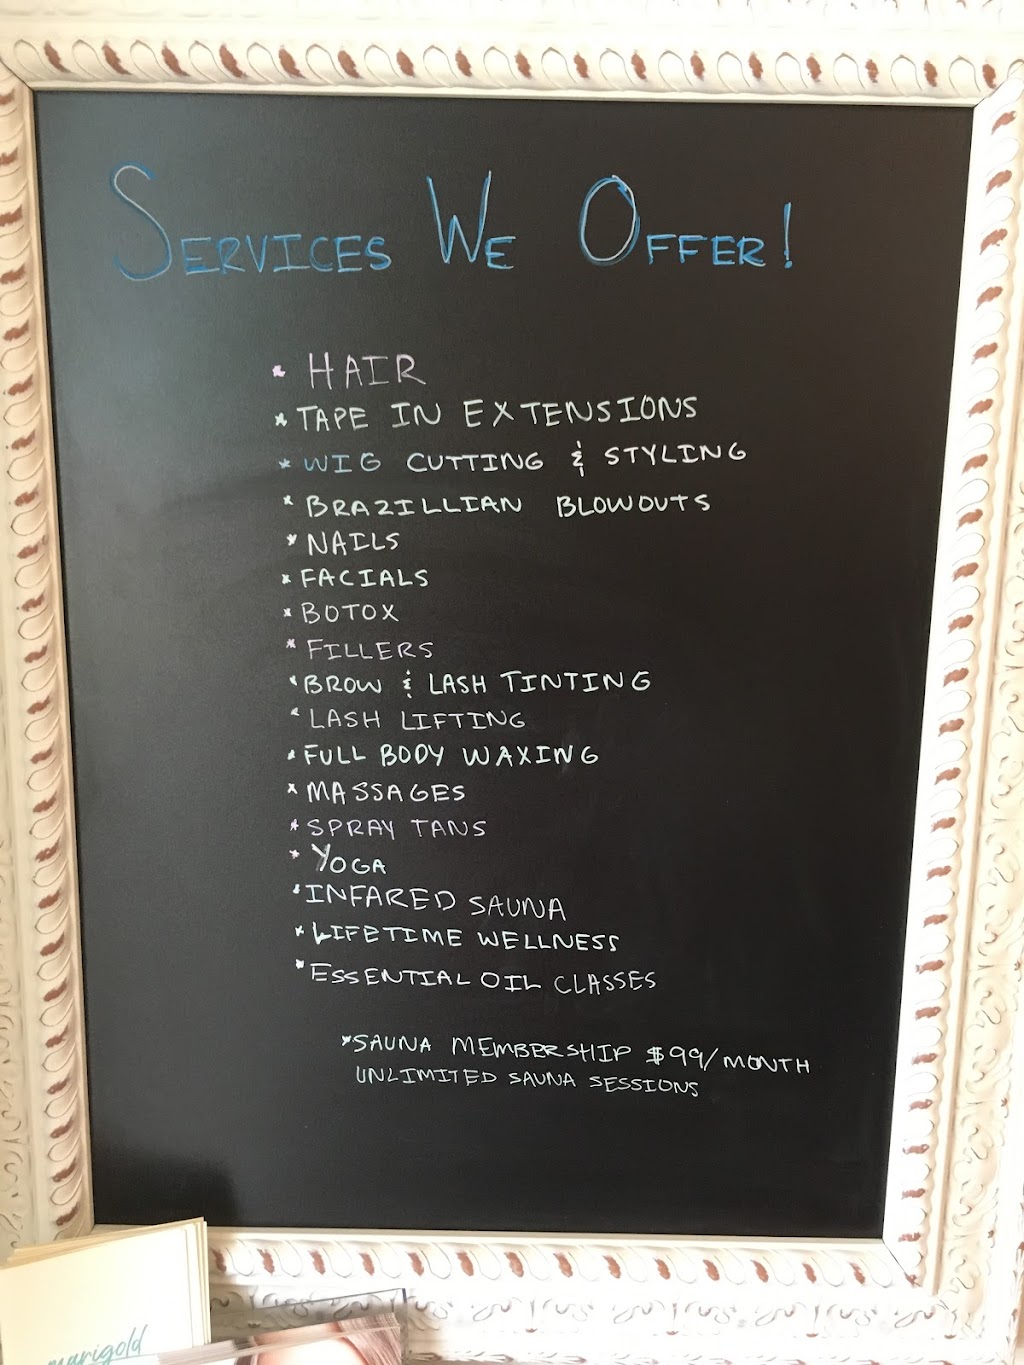 SERVICES WE OFFER!
* HAIR
* TAPE IN EXTENSIONS
* WIG CUTTING & STYLING
* BRAZILLIAN BLOWOUTS
* NAILS
* FACIALS
* BOTOX
* FILLERS
* BROW & LASH TINTING
* LASH LIFTING
* FULL BODY WAXING
* MASSAGES
* SPRAY TANS
* YOGA
* INFARED SAUNA
* LIFETIME WELLNESS
* ESSENTIAL OIL CLASSES
* SAUNA MEMBERSHIP $99/MONTH
UNLIMITED SAUNA SESSIONS
marigold